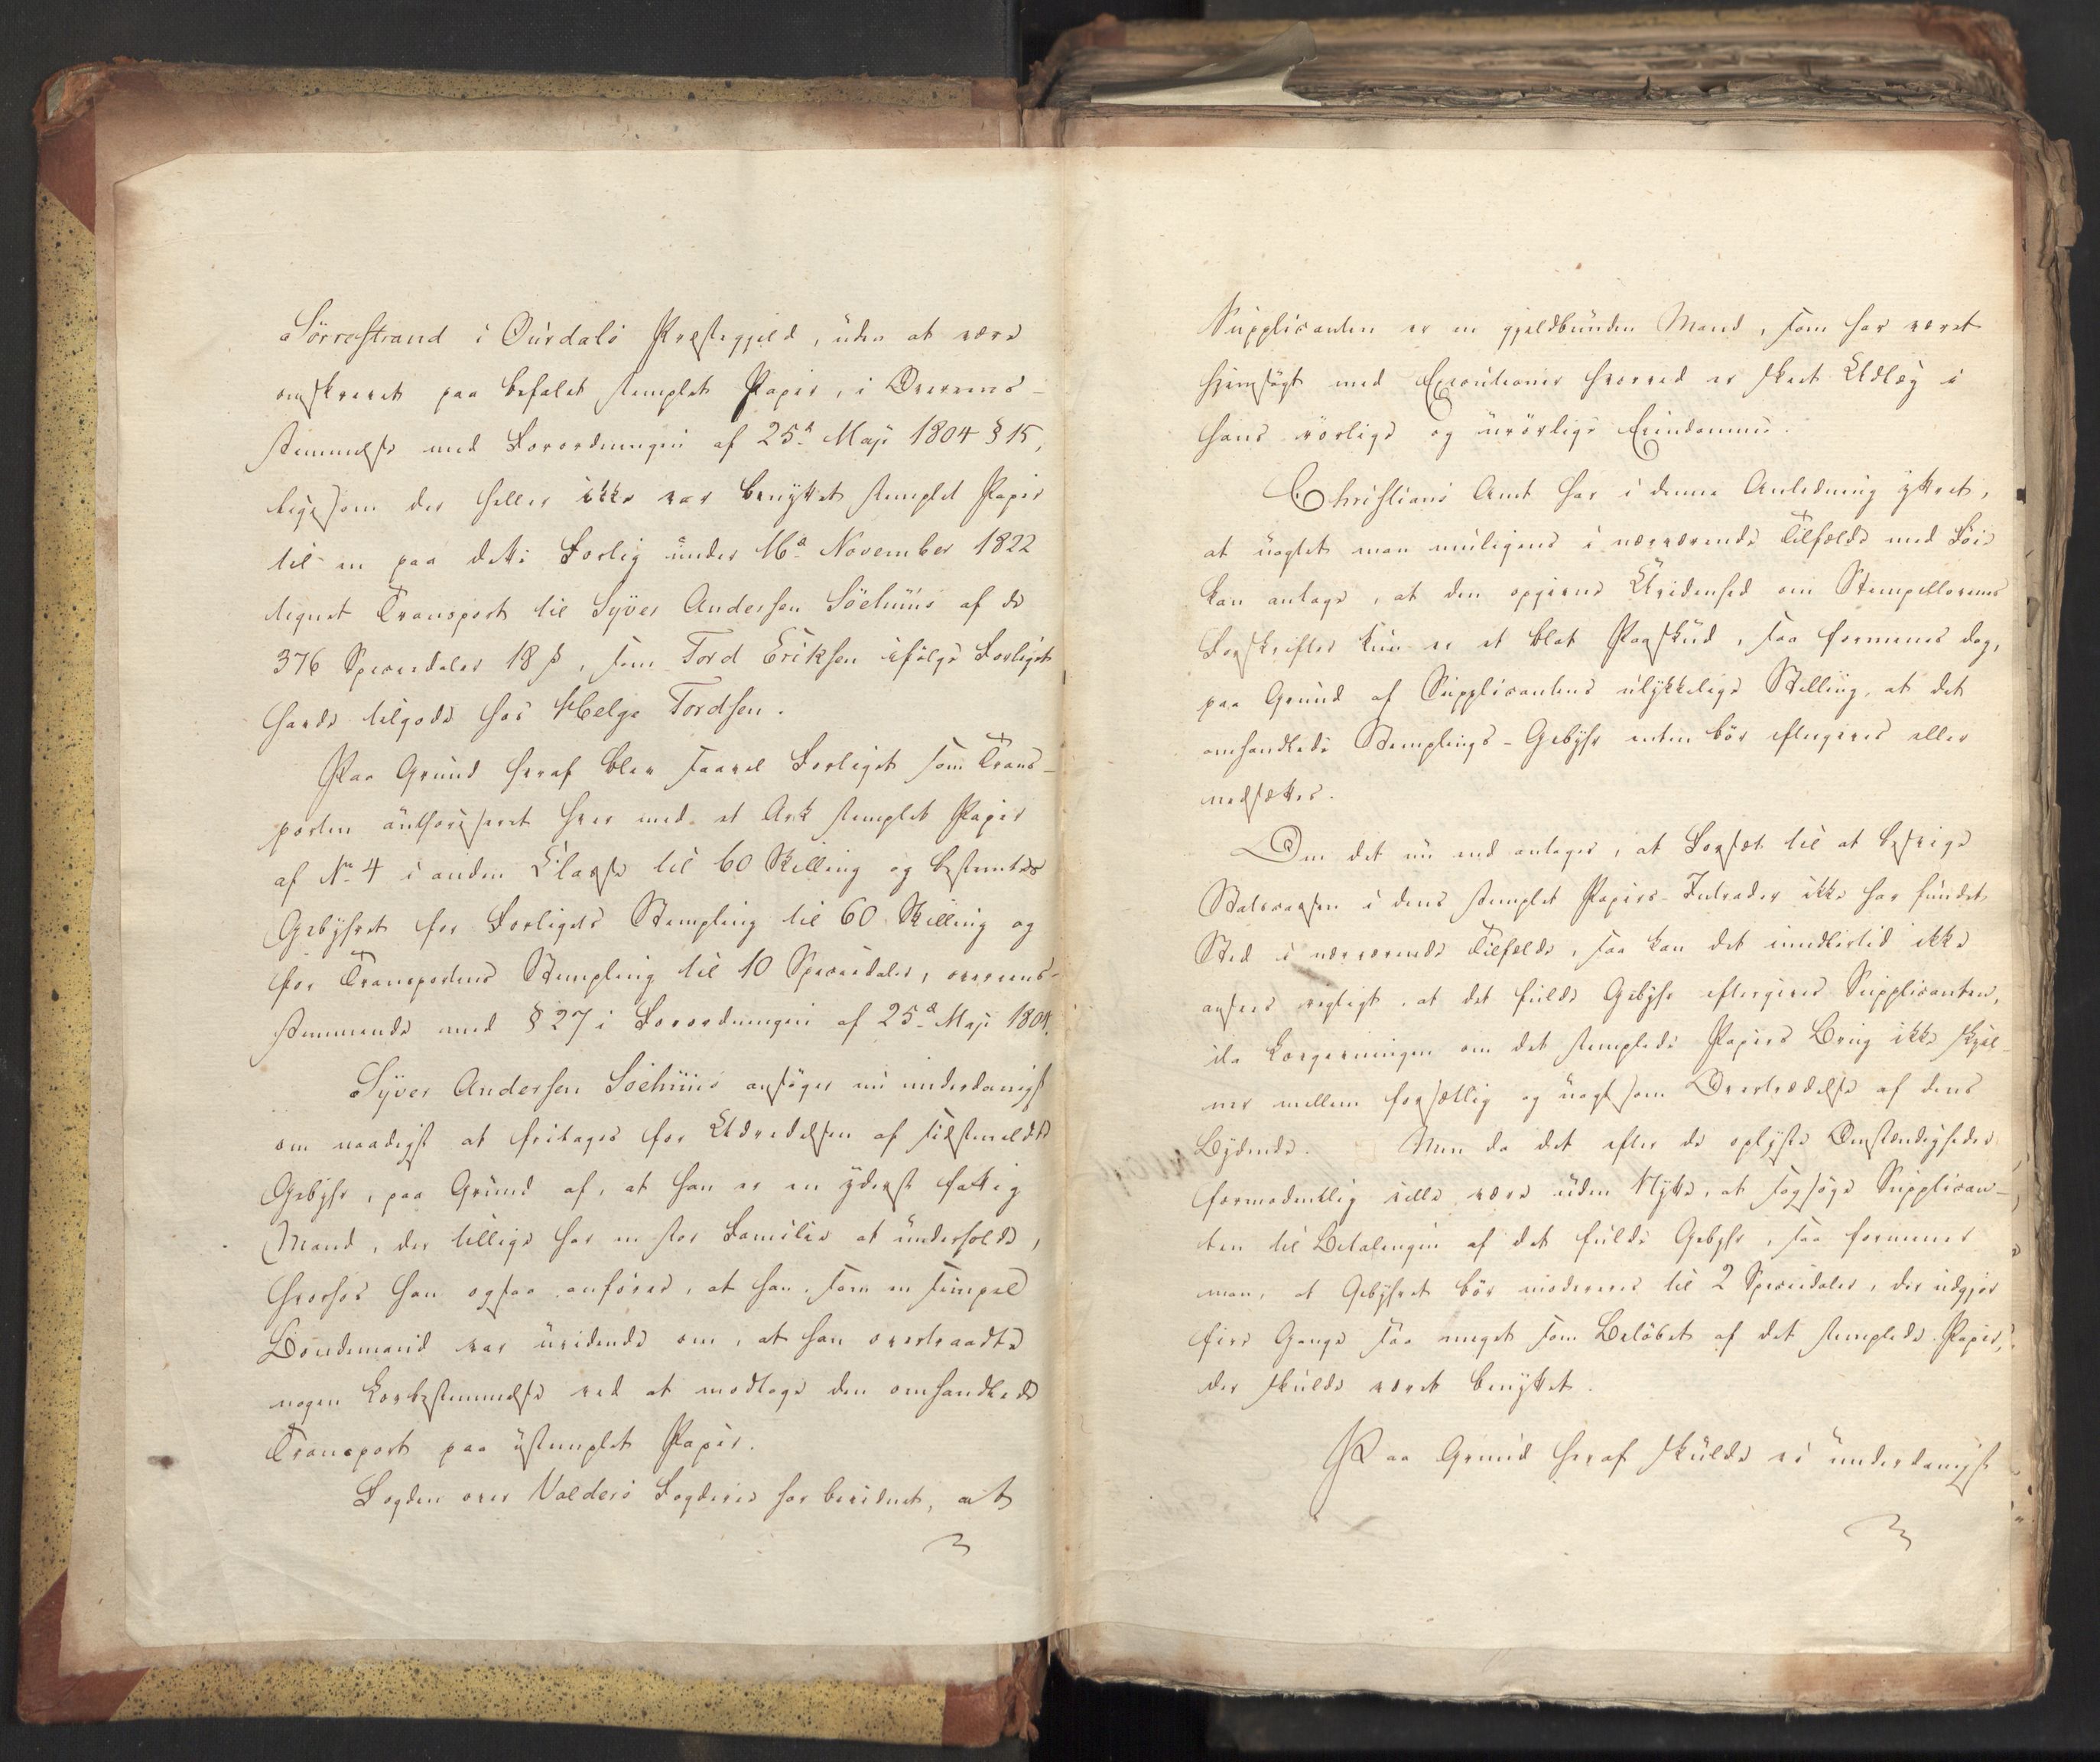 Sörrestrand i Ourdals Præstegjeld, uden at være
omskrevet paa befalet stemplet Papir, i Overeens-
stemmelse med Forordningen af 25d Maji 1804 § 15,
ligesom der heller ikke var benyttet stemplet Papir
til en paa dette Forlig under 16d November 1822
tegnet Transport til Syver Andersen Söehuus af de
376 Speciedaler 18 ß, som Tord Eriksen ifölge Forliget
havde tilgode hos Helge Tordsen.
Paa Grund heraf blev saavel Forliget som Trans-
porten authoriseret hver med et Ark stemplet Papir
af No 4 i anden Classe til 60 Skilling og bestemtes
Gebyhret for Forligets Stempling til 60 Skilling og
for Transportens Stempling til 10 Speciedaler, overeens-
stemmende med § 27 i Forordningen af 25d Maji 1804.
Syver Andersen Söehuus ansöger nu underdanigst
om naadigst at fritages for Udredelsen af sidstmeldte
Gebyhr, paa Grund af, at han er en yderst fattig
Mand, der tillige har en stor Familie at underholde,
hvorhos han ogsaa anförer, at han som en simpel
Bondemand var uvidende om, at han overtraadte
nogen Lovbestemmelse ved at modtage den omhandlede
Transport paa ustemplet Papir.
Fogden over Valders Fogderie har bevidnet, at
Supplicanten er en gjeldbunden Mand, som har været
hjemsögt med Executioner hvorved er skeet Udlæg i
hans rörlige og urörlige Eiendomme.
Christians Amt har i denne Anledning yttret,
at uagtet man muligens i nærværende Tilfælde med Föie
kan antage, at den opgivne Uvidenhed om Stempellovens
Forskrifter kun er et blot Paaskud, saa formenes dog,
paa Grund af Supplicantens ulykkelige Stilling, at det
omhandlede Stemplings-Gebyhr enten bör eftergives eller
nedsættes.
Om det nu end antages, at Forsæt til at besvige
Statscassen i dens stemplet Papiirs-Intrader ikke har fundet
Sted i nærværende Tilfælde, saa kan det imidlertid ikke
ansees rigtigt, at det fulde Gebyhr eftergives Supplicanten,
da Lovgivningen om det stemplede Papiirs Brug ikke skjel-
ner mellem forsætlig og uagtsom Overtrædelse af dens
Bydende. Men da det efter de oplyste Omstændigheder
formodentlig ville være uden Nytte, at sagsöge Supplican-
ten til Betalingen af det fulde Gebyhr, saa formener
man, at Gebyhret bör modereres til 2 Speciedaler, der udgjör
fire Gange saa meget som Belöbet af det stemplede Papir,
der skulde været benyttet.
Paa Grund heraf skulde vi underdanigst